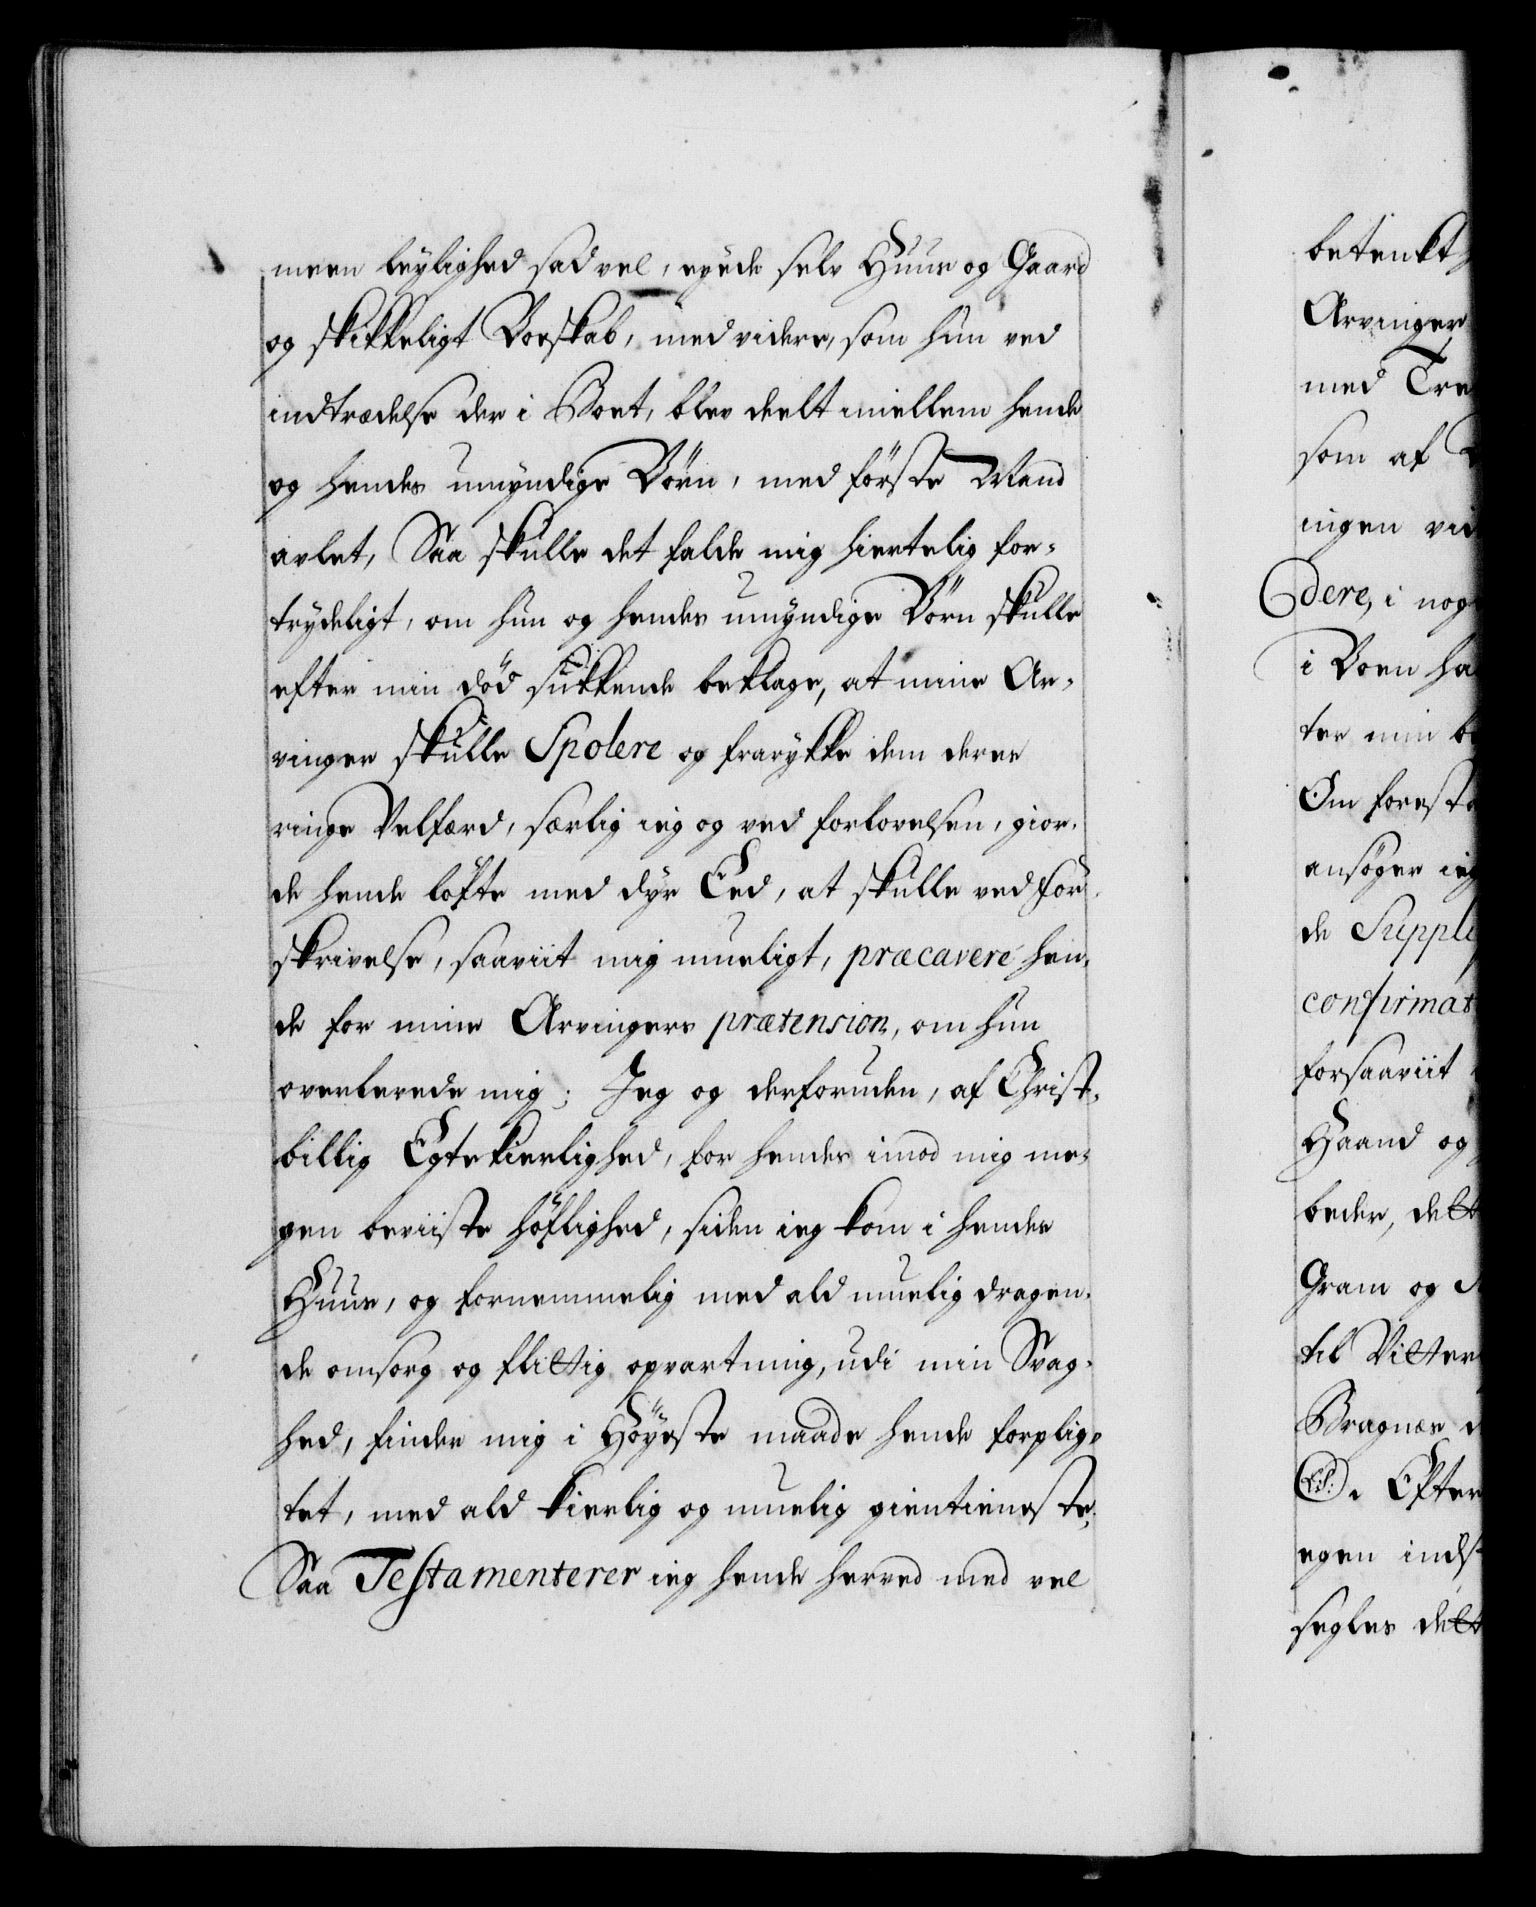 meen leylighed sad vel, eyede selv Huus og Gaard
og skikkeligt Boeskab, med videre, som hun ved
indtrædelse der i Boet, blev deelt imellem hende
og hendes umyndige Börn, med förste Mand
avlet, Saa skulle det falde mig hiertelig for-
trydeligt, om hun og hendes umyndige Börn skulle
efter min död sukkende beklage, at mine Ar-
vinger skulle Spolere og frarykke dem deres
ringe Velfærd, særlig ieg og ved forlovelsen, gior-
de hende löfte med dyr Eed, at skulle ved for-
skrivelse, saaviit mig mueligt, præcavere hen-
de for mine Arvingers prætension, om hun
overlevede mig; Jeg og desforuden, af Christ-
billig Egtekierlighed, for hendes imod mig me-
gen beviiste höflighed, siden ieg kom i hendes
Huus, og fornemmelig med ald muelig dragen-
de omsorg og flittig opvartning, udi min Svag-
hed, finder mig i Höyeste maade hende forplig-
tet, med ald kierlig og muelig gientieneste;
Saa Testamenterer ieg hende herved med vel
betenkt
Arvinger
med Tre
som af
ingen vid
dere, i nog
i Boen ha
ter min be
Om foresta
ansöger ieg
de Suppli
confirmat
forsaaviit
Haand og
beder, dett
Gram og
til Vitter
Bragnæs d
Efter
egen inds
segles dett